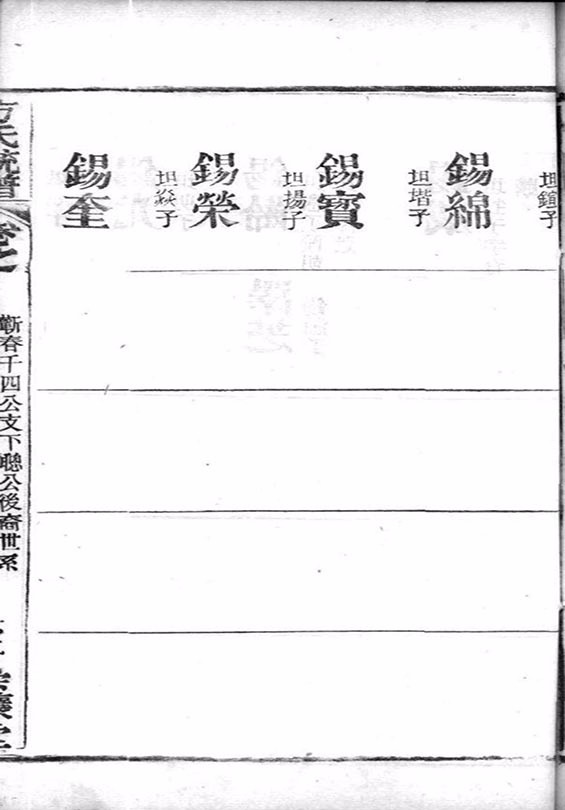 坦鐘子
錫綿
坦堦子
錫寶
坦揚子
錫榮
坦焱子
錫奎
方氏統譜
卷之
蘄春千四公支下聰公後裔世系